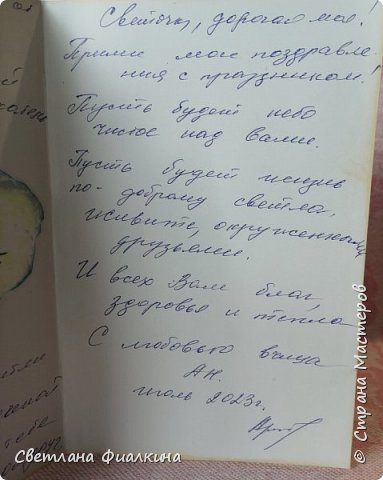 Светочка, дорогая моя!
Прими мои поздравле-
ния с праздником!
Пусть будет небо
чистое над Вами.
Пусть будет жизнь
по-доброму светла,
живите, окруженными
друзьями.
И всех Вам благ,
здоровья и тепла
С любовью ваша
АН.
июль 2023г.
тебе
Светлана Фиалкина
© Страна Мастеров